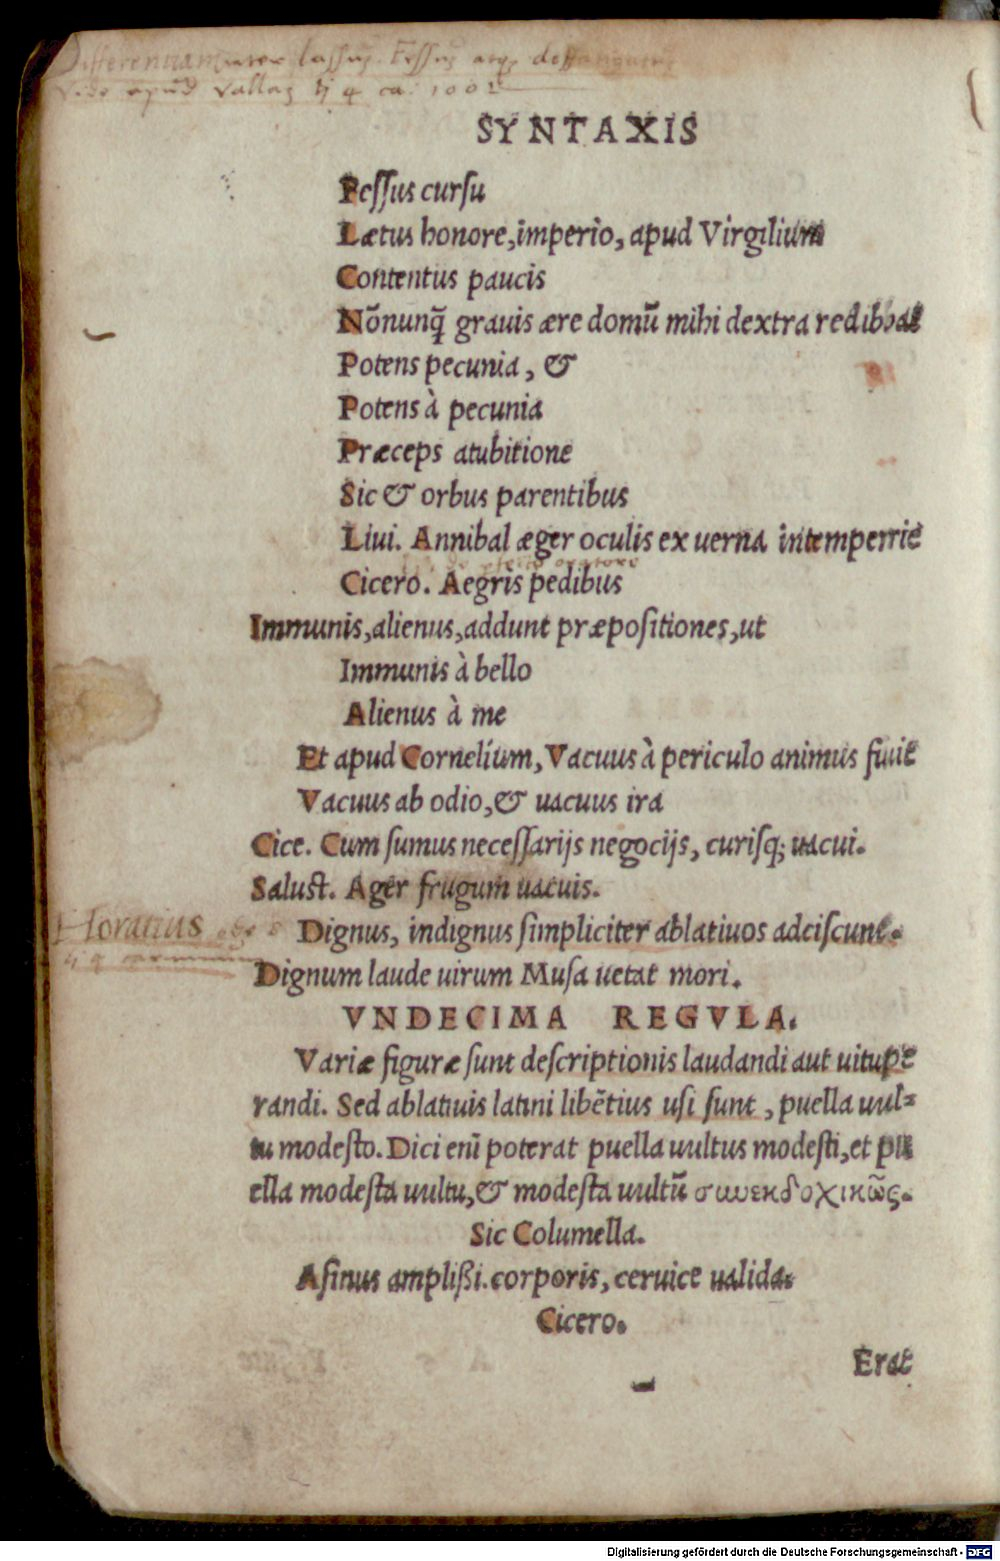 Differentiam inter lassus. Fessus atqꝫ
Vide apud Vallaꝫ li 4 ca. 1002
SYNTAXIS
Fessus cursu
Lætus honore, imperio, apud Virgilium
Contentus paucis
Nõnunq̃ grauis ære domũ mihi dextra redibbat
Potens pecunia, &
Potens à pecunia
Præceps atubitione
Sic & orbus parentibus
Liui. Annibal æger oculis ex uerna intemperrie
oratore
Cicero. Aegris pedibus
Immunis, alienus, addunt præpositiones, ut
Immunis à bello
Alienus à me
Et apud Cornelium, Vacuus à periculo animus fuit
Vacuus ab odio, & uacuus ira
Cice. Cum sumus necessarijs negocijs, curisq; uacui.
Salust. Ager frugum uacuis.
Horatius
Dignus, indignus simpliciter ablatiuos adciscunt.
Dignum laude uirum Musa uetat mori.
VNDECIMA REGVLA.
Variæ figuræ sunt descriptionis laudandi aut uitupe
randi. Sed ablatiuis latini libẽtius usi sunt, puella uul-
tu modesto. Dici enĩ poterat puella uultus modesti, et pu
ella modesta uultu, & modesta uultũ συνεκδοχικῶς.
Sic Columella.
Asinus amplißi. corporis, ceruice ualida.
Cicero.
Erat
Digitalisierung gefördert durch die Deutsche Forschungsgemeinschaft - DFG